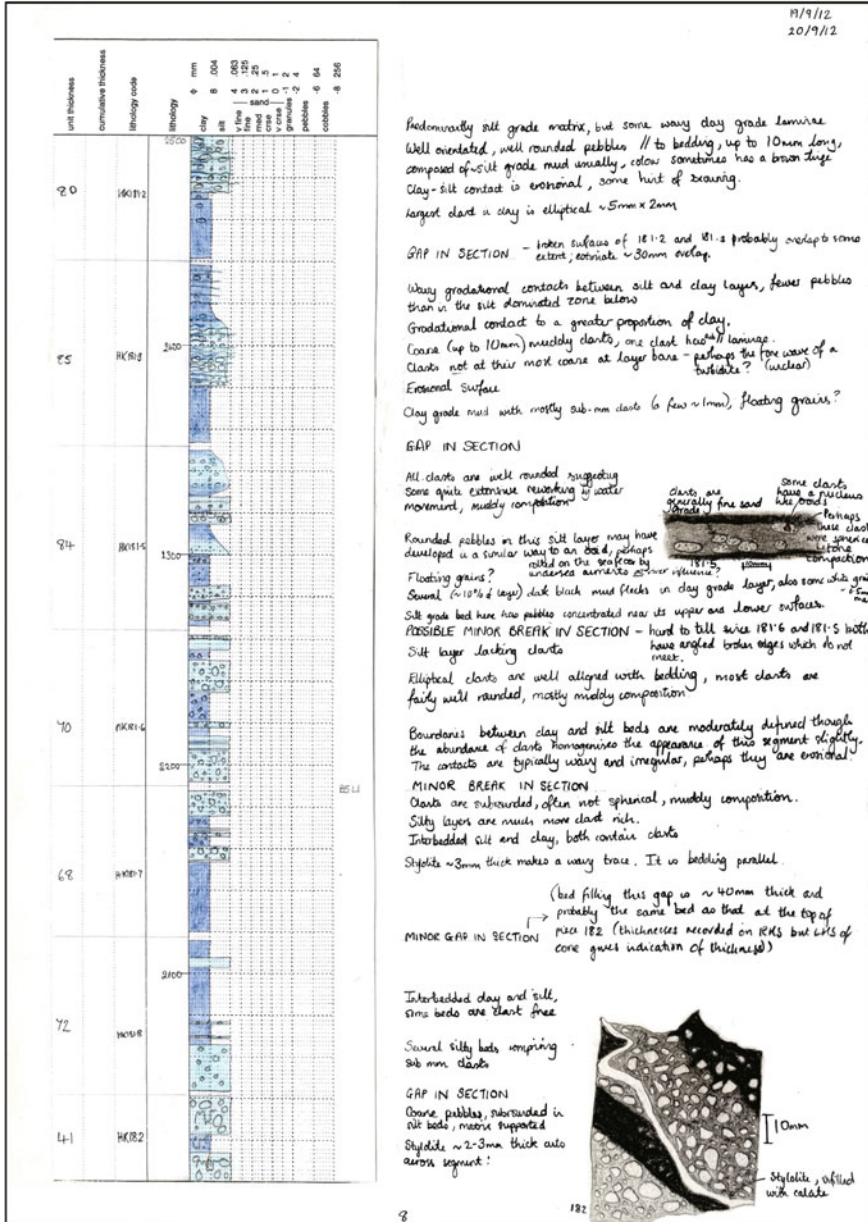 19/9/12
20/9/12
unit thickness
cumulative thickness
lithology code
lithology
ϕ mm
clay
8 .004
silt
4 .063
v fine
3 .125
fine
2 .25
med
1 .5
crse
0 1
v crse
sand
-1 2
granules
-2 4
pebbles
-6 64
cobbles
-8 256
80
85
HK181.3
84
HK181.5
70
HK181.6
68
HK181.7
72
HK181.8
41
HK182
2400
2200
2100
Predominantly silt grade matrix, but some wavy clay grade laminae
Well orientated, well rounded pebbles // to bedding, up to 10mm long,
composed of silt grade mud usually, colour sometimes has a brown tinge
Clay-silt contact is erosional, some hint of scouring.
Largest clast in clay is elliptical ~5mm x 2mm
GAP IN SECTION - broken surfaces of 181.2 and 181.3 probably overlap to some
extent; estimate ~30mm overlap.
Wavy gradational contacts between silt and clay layers, fewer pebbles
than in the silt dominated zone below
Gradational contact to a greater proportion of clay.
Coarse (up to 10mm) muddy clasts, one clast has // laminae.
Clasts not at their most coarse at layer base - perhaps the fore wave of a
turbidite? (unclear)
Erosional surface
Clay grade mud with mostly sub-mm clasts (a few ~1mm), floating grains?
GAP IN SECTION
All clasts are well rounded suggesting
some quite extensive reworking by water
movement, muddy composition
clasts are
generally fine sand
grade
Some clasts
have a nucleus
like ooids
Perhaps
these clasts
were spherical
compaction
181.5
10mm
Rounded pebbles in this silt layer may have
developed in a similar way to an ooid, perhaps
rolled on the seafloor by
undersea currents or river influence?
Floating grains?
Several (~10% of layer) dark black mud flecks in clay grade layer, also some white
Silt grade bed here has pebbles concentrated near its upper and lower surfaces.
POSSIBLE MINOR BREAK IN SECTION - hard to tell since 181.6 and 181.5 both
have angled broken edges which do not
meet.
Silt layer lacking clasts
Elliptical clasts are well aligned with bedding, most clasts are
fairly well rounded, mostly muddy composition
Boundaries between clay and silt beds are moderately defined though
the abundance of clasts homogenises the appearance of this segment slightly.
The contacts are typically wavy and irregular, perhaps they are erosional.
MINOR BREAK IN SECTION
Clasts are subrounded, often not spherical, muddy composition.
Silty layers are much more clast rich.
Interbedded silt and clay, both contain clasts
Stylolite ~3mm thick makes a wavy trace. It is bedding parallel.
MINOR GAP IN SECTION
(bed filling this gap is ~40mm thick and
probably the same bed as that at the top of
piece 182 (thicknesses recorded on RHS but LHS of
core gives indication of thickness))
Interbedded clay and silt,
some beds are clast free
Several silty beds comprising
sub mm clasts
GAP IN SECTION
Coarse pebbles, subrounded in
silt beds, matrix supported
Stylolite ~2-3mm thick cuts
across segment!
10mm
Stylolite, infilled
with calcite
182
8